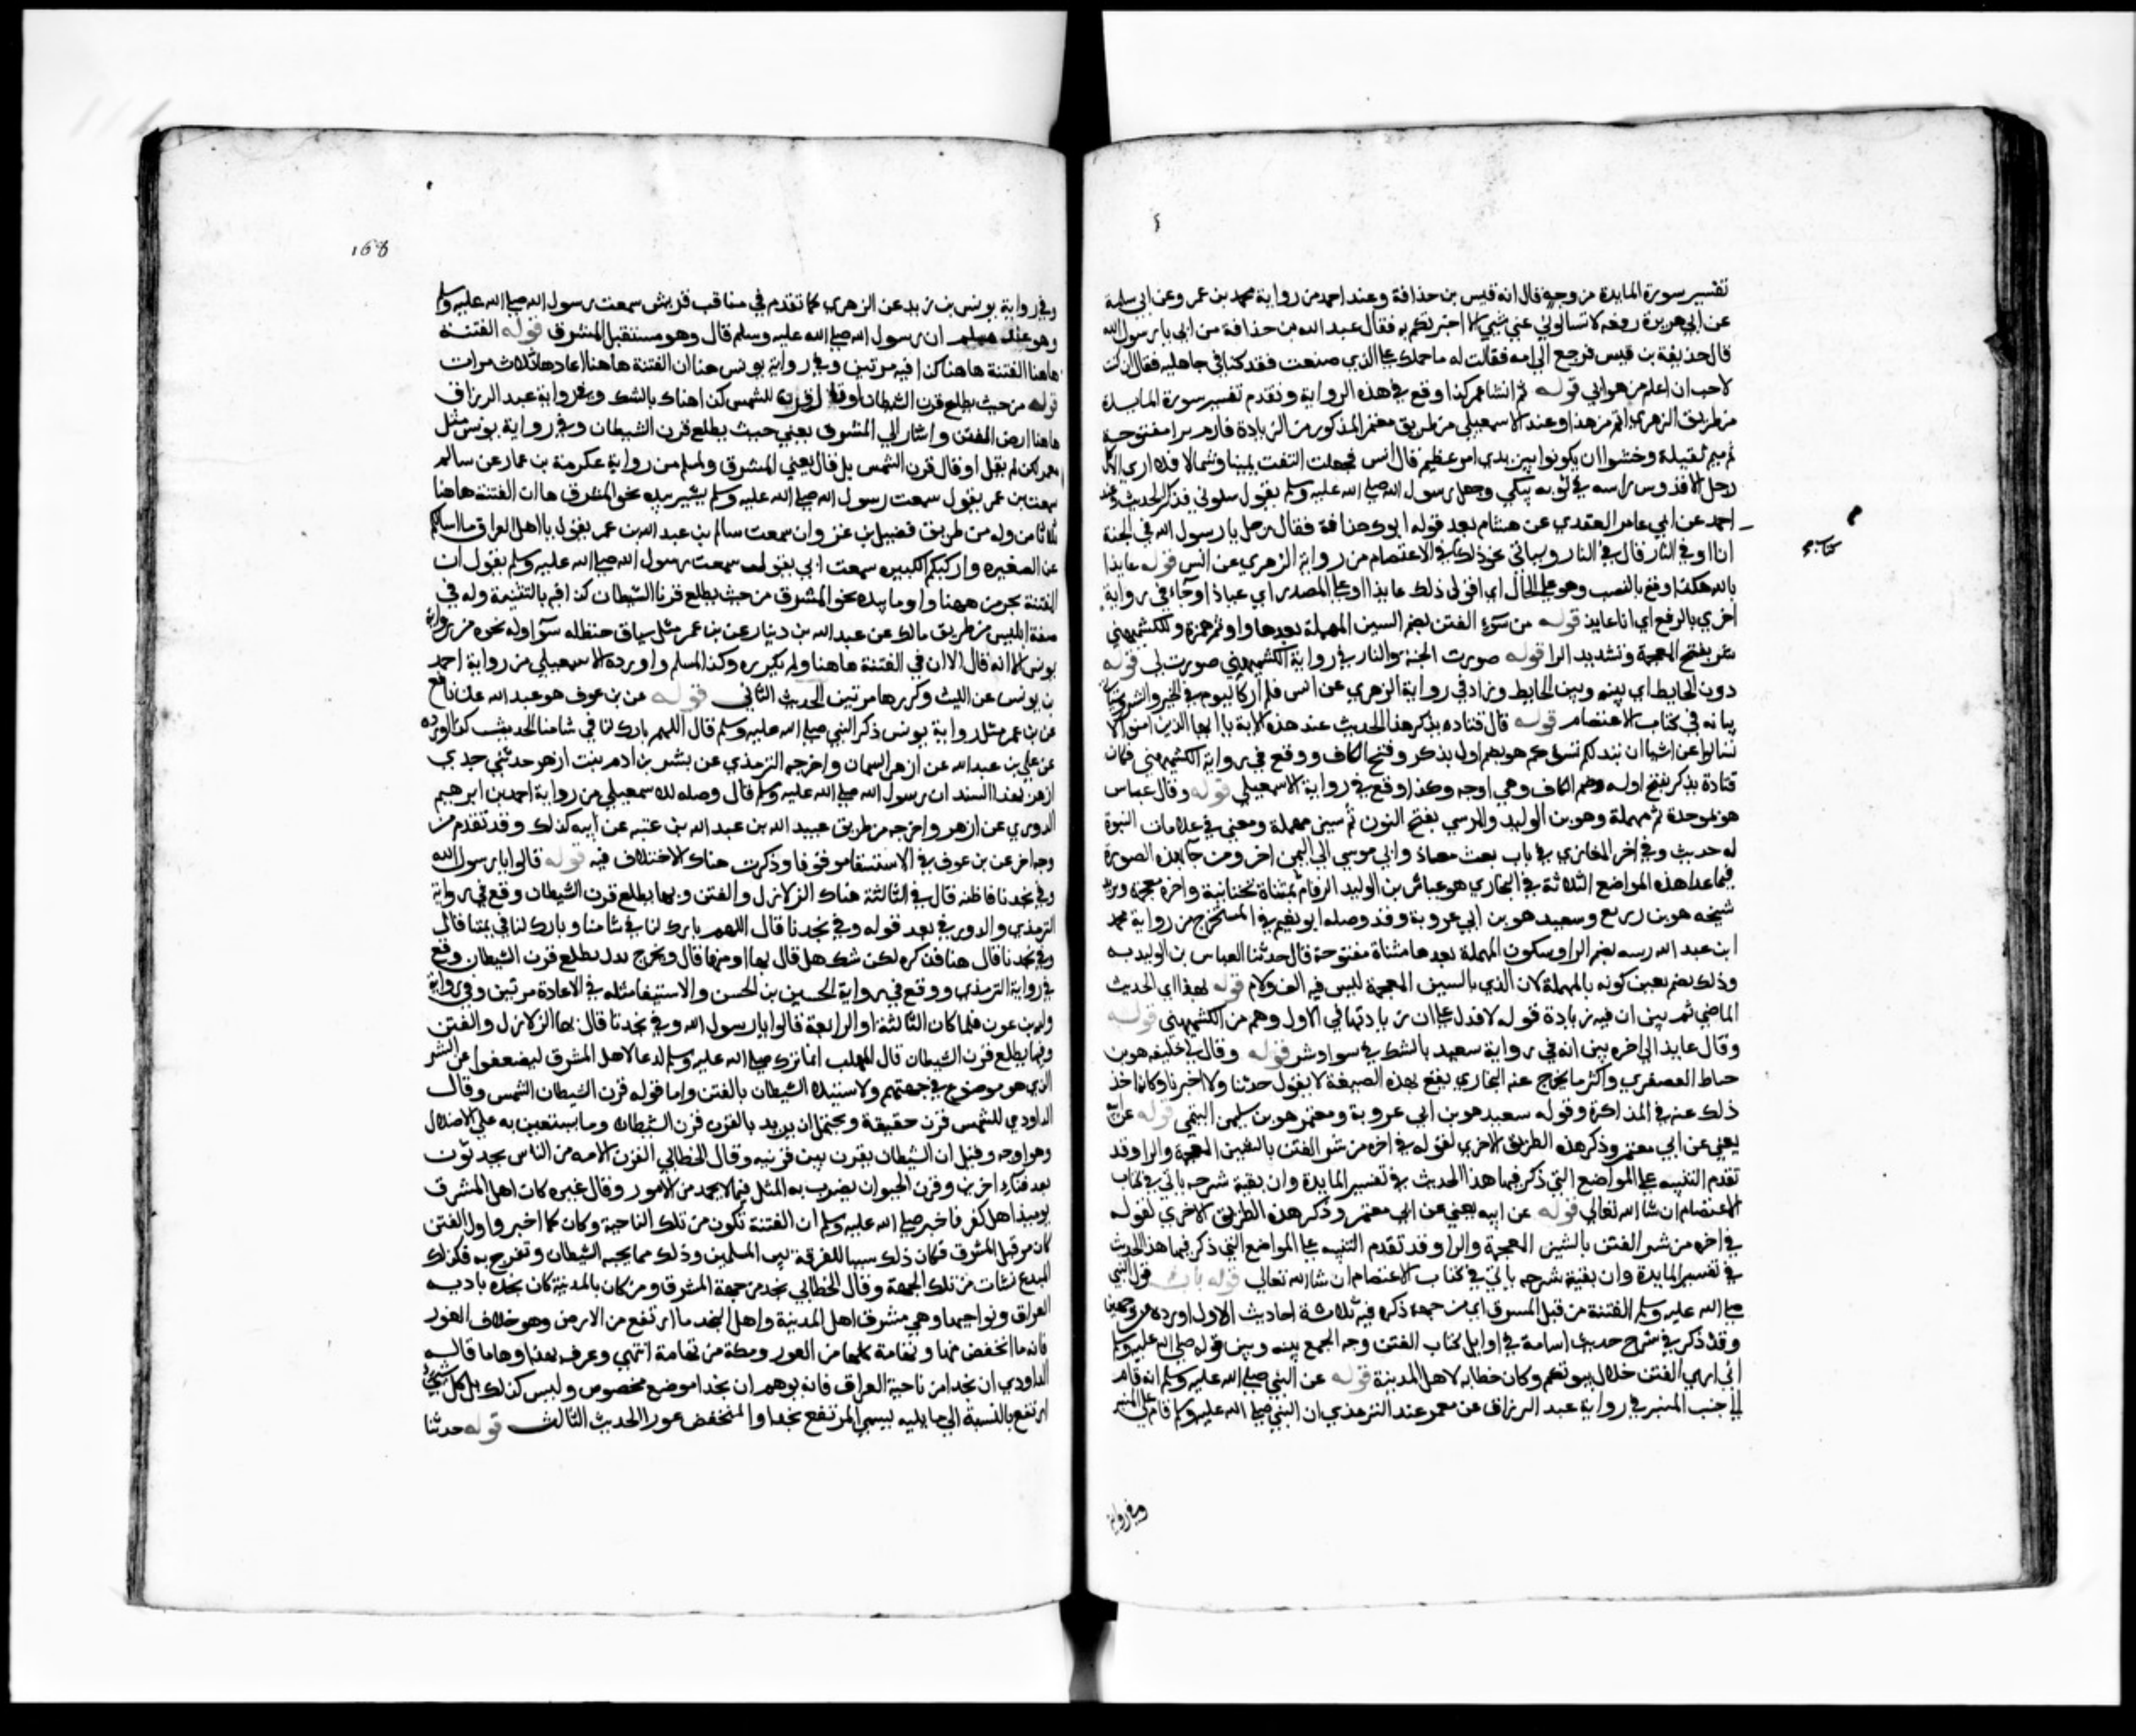 تفسير سورة المايدة من وجه قال انه قيس بن حذافة وعند احمد من رواية محمد بن عمرو عن ابي سلمة
عن ابي هريرة رفعه لا تسالوني عن شي الا اخبرتكم به فقال عبد الله بن حذافة من ابي يا رسول الله
قال حذيفة بن قيس فرجع الي امه فقالت له ما حملك علي الذي صنعت فقد كنا في جاهليه فقال اني كنت
لاحب ان اعلم من هو ابي قوله ثم انشا عمر كذا وقع في هذه الرواية وتقدم تفسير سورة المايدة
من طريق الزهري اتم من هذا وعند الاسمعيلي من طريق معتمر المذكور من الزيادة فارم برا مفتوحة
ثم ميم ثقيلة وخشوا ان يكونوا بين يدي امر عظيم قال انس فجعلت التفت يمينا وشمالا فلا اري كل
رجل الا قد دس راسه في ثوبه يبكي وجعل رسول الله صلي الله عليه وسلم يقول سلوني فذكر الحديث وعند
احمد عن ابي عامر العقدي عن هشام بعد قوله ابوك حذافة فقال رجل يا رسول الله في الجنة
انا او في النار قال في النار وسياتي نحو ذلك في الاعتصام من رواية الزهري عن انس قوله عايذا
بالله هكذا وقع بالنصب وهو علي الحال اي اقول ذلك عايذا او علي المصدر اي عياذا وجاء في رواية
اخري بالرفع اي انا عايذ قوله من سوء الفتن بضم السين المهملة بعدها واو ثم همزة وللكشميهني
شر بفتح المعجمة وتشديد الرا قوله صورت الجنة والنار في رواية الكشميهني صورت لي قوله
دون الحايط اي بينه وبين الحايط وزاد في رواية الزهري عن انس فلم ار كاليوم في الخير والشر وسياتي
بيانه في كتاب الاعتصام قوله قال قتاده يذكر هذا الحديث عند هذه الاية يا ايها الذين امنوا لا
تسالوا عن اشيا ان تبد لكم تسؤكم هو بضم اول يذكر وفتح الكاف ووقع في رواية الكشميهني فكان
قتادة يذكر بفتح اوله وضم الكاف وهي اوجه وكذا وقع في رواية الاسمعيلي قوله وقال عباس
هو بموحدة ثم مهملة وهو بن الوليد والنرسي بفتح النون ثم سين مهملة ومضي في علامات النبوة
له حديث وفي اخر المغازي في باب بعث معاذ وابي موسي الي اليمن اخر ومن جا بهذه الصورة
فيما عدا هذه المواضع الثلاثة في البخاري هو عياش بن الوليد الرقام بمثناة تحتانية واخره معجمة ويزيد
شيخه هو بن زريع وسعيد هو بن ابي عروبة وقد وصله ابو نعيم في المستخرج من رواية محمد
ابن عبد الله رسه بضم الرا وسكون المهملة بعدها مثناة مفتوحة قال حدثنا العباس بن الوليد به
وذلك بضم يعين كونه بالمهملة لان الذي بالسين المعجمة ليس فيه الف ولام قوله بهذا اي الحديث
الماضي ثم بين ان فيه زيادة قوله لافا فدل علي ان زيادتها في الاول وهم من الكشميهني قوله
وقال عايذ الي اخره بين انه في رواية سعيد بالشك في سوا وشر قوله وقال لي خليفه هو بن
خياط العصفري واكثر ما يخرج عنه البخاري يقع بهذه الصيغة لا يقول حدثنا ولا اخبرنا وكانه اخذ
ذلك عنه في المذاكرة وقوله سعيد هو بن ابي عروبة ومعتمر هو بن سليمن التيمي قوله عن ابيه
يعني عن ابي معتمر وذكر هذه الطريق الاخري لقوله في اخره من شر الفتن بالشين المعجمة والرا وقد
تقدم التنبيه علي المواضع التي ذكر فيها هذا الحديث في تفسير المايدة وان بقية شرحه ياتي في كتاب
الاعتصام ان شا الله تعالي قوله عن ابيه يعني عن ابي معتمر وذكر هذه الطريق الاخري لقوله
في اخره من شر الفتن بالشين المعجمة والرا وقد تقدم التنبيه علي المواضع التي ذكر فيها هذا الحديث
في تفسير المايدة وان بقية شرحه ياتي في كتاب الاعتصام ان شا الله تعالي قوله باب قول النبي
صلي الله عليه وسلم الفتنة من قبل المشرق اي من جهته ذكر فيه ثلاثة احاديث الاول اورده من وجهين
وقد ذكر في شرح حديث اسامة في اوايل كتاب الفتن وجه الجمع بينه وبين قوله صلي الله عليه وسلم
اني اري الفتن خلال بيوتكم وكان خطابه لاهل المدينة قوله عن النبي صلي الله عليه وسلم انه قام
الي جنب المنبر في رواية عبد الرزاق عن معمر عند الترمذي ان النبي صلي الله عليه وسلم قام علي المنبر
وفي رواية
168
وفي رواية يونس بن يزيد عن الزهري كما تقدم في مناقب قريش سمعت رسول الله صلي الله عليه وسلم
وهو عند مسلم ان رسول الله صلي الله عليه وسلم قال وهو مستقبل المشرق قوله الفتنة
هاهنا الفتنة هاهنا كذا فيه مرتين وفي رواية يونس هنا ان الفتنة هاهنا اعادها ثلاث مرات
قوله من حيث يطلع قرن الشيطان او قال قرن الشمس كذا هناك بالشك وفي رواية عبد الرزاق
هاهنا ارض الفتن واشار الي المشرق يعني حيث يطلع قرن الشيطان وفي رواية يونس مثل
معمر لكن لم يقل او قال قرن الشمس بل قال يعني المشرق ولمسلم من رواية عكرمة بن عمار عن سالم
سمعت بن عمر يقول سمعت رسول الله صلي الله عليه وسلم يشير بيده نحو المشرق ها ان الفتنة هاهنا
ثلاثا من وله من طريق فضيل بن غزوان سمعت سالم بن عبد الله بن عمر يقول يا اهل العراق ما اسالكم
عن الصغيره واركبكم الكبيره سمعت ابي يقول سمعت رسول الله صلي الله عليه وسلم يقول ان
الفتنة تجي من ههنا واوما بيده نحو المشرق من حيث يطلع قرنا الشيطان كذا فيه بالتثنية وله في
صفة ابليس من طريق مالك عن عبد الله بن دينار عن بن عمر مثل سياق حنظله سوآ وله نحوه من رواية
يونس الا انه قال الا ان في الفتنة هاهنا ولم يكرره وكذا لمسلم واورده الاسمعيلي من رواية احمد
بن يونس عن الليث وكررها مرتين الحديث الثاني قوله عن بن عوف هو عبد الله عن نافع
عن بن عمر مثل رواية يونس ذكر النبي صلي الله عليه وسلم قال اللهم بارك لنا في شامنا الحديث كذا اورده
عن علي بن عبد الله عن ازهر السمان واخرجه الترمذي عن بشر بن ادم بن بنت ازهر حدثني جدي
ازهر بهذا السند ان رسول الله صلي الله عليه وسلم قال وصله للاسمعيلي من رواية احمد بن ابرهيم
الدوري عن ازهر واخرجه من طريق عبيد الله بن عبد الله بن عتبه عن ابيه كذلك وقد تقدم من
وجه اخر عن بن عوف في الاستسقا موقوفا وذكرت هناك الاختلاف فيه قوله قالوا يا رسول الله
وفي نجدنا فاظنه قال في الثالثة هناك الزلازل والفتن وبها يطلع قرن الشيطان وقع في رواية
الترمذي والدوري بعد قوله وفي نجدنا قال اللهم بارك لنا في شامنا وبارك لنا في يمننا قال
وفي نجدنا قال هنا فذكره لكن شك هل قال بها او منها قال ويخرج بدل يطلع قرن الشيطان وقع
في رواية الترمذي ووقع في رواية الحسين بن الحسن والاستسقا مثله في الاعادة مرتين وفي رواية
ولد بن عون فلما كان الثالثة او الرابعة قالوا يا رسول الله وفي نجدنا قال بها الزلازل والفتن
وفيها يطلع قرن الشيطان قال المهلب انما ترك صلي الله عليه وسلم الدعا لاهل المشرق ليضعفوا عن الشر
الذي هو موضوع في جهتهم ولاستيلا الشيطان بالفتن واما قوله قرن الشيطان الشمس وقال
الداودي للشمس قرن حقيقة ويحتمل ان يريد بالقرن قرن الشيطان وما يستعين به علي الاضلال
وهو اوجه وقيل ان الشيطان يقرن بين قرنيه وقال الخطابي القرن الامه من الناس يحدثون
بعد فناء اخرين وقرن الحيوان يضرب به المثل فيما لا يحمد من الامور وقال غيره كان اهل المشرق
يوميذ اهل كفر فاخبر صلي الله عليه وسلم ان الفتنة تكون من تلك الناحية وكان كما اخبر واول الفتن
كان من قبل المشرق فكان ذلك سببا للفرقة بين المسلمين وذلك مما يحبه الشيطان وتفرح به فكذلك
البدع نشات من تلك الجهة وقال الخطابي نجد من جهة المشرق ومن كان بالمدينة كان نجده باديه
العراق ونواحيها وهي مشرق اهل المدينة واصل النجد ما ارتفع من الارض وهو خلاف الغور
فانه ما انخفض منها وتهامة كلها من الغور ومكة من تهامة انتهي وعرف بهذا وها ما قاله
الداودي ان نجدا من ناحية العراق فانه يوهم ان نجدا موضع مخصوص وليس كذلك بل كل شي
ارتفع بالنسبة الي ما يليه يسمي المرتفع نجدا والمنخفض غورا الحديث الثالث قوله حدثنا